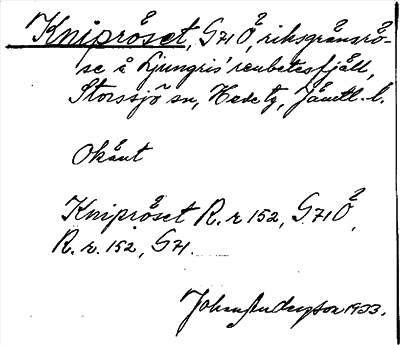 Knipröset, G71 Ö, riksgränsrö-
se å Ljungris' renbetesfjäll,
Storsjö sn, Hede tg, Jämtl. l.
Okänt
Knipröset R. r 152, G 71 Ö,
R. r. 152, G 71.
Johan Anderzson 1933.